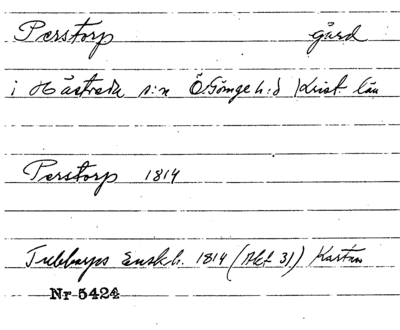 Perstorp gård
i Hästveda s:n Ö Göinge h:d Krist. län
Perstorp 1814
Tubbarps Enskh. 1814 (Akt 31) Kartan
Nr 5424